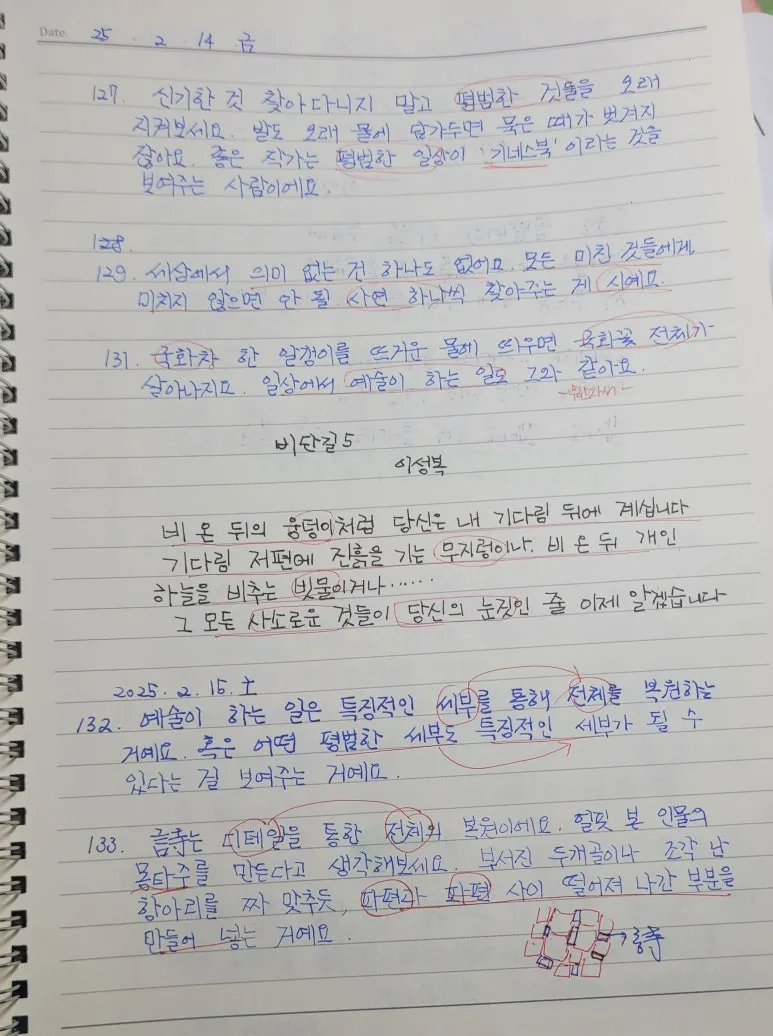 Date. 25 . 2 . 14 금
127. 신기한 것 찾아다니지 말고 평범한 것들을 오래
지켜보세요. 발도 오래 물에 담가두면 묵은 때가 벗겨지
잖아요. 좋은 작가는 평범한 일상이 '기네스북'이라는 것을
보여주는 사람이에요.
128.
129. 세상에서 의미 없는 건 하나도 없어요. 모든 미친 것들에게
미치지 않으면 안 될 사연 하나씩 찾아주는 게 시예요.
131. 국화차 한 알갱이를 뜨거운 물에 띄우면 국화꽃 전체가
살아나지요. 일상에서 예술이 하는 일도 그와 같아요.
비단길 5
이성복
비 온 뒤의 웅덩이처럼 당신은 내 기다림 뒤에 계십니다
기다림 저편에 진흙을 기는 무지렁이나. 비 온 뒤 개인
하늘을 비추는 빗물이거나......
그 모든 사소로운 것들이 당신의 눈짓인 줄 이제 알겠습니다
2025. 2. 15. 土
132. 예술이 하는 일은 특징적인 세부를 통해 전체를 복원하는
거예요. 혹은 어떤 평범한 세부도 특징적인 세부가 될 수
있다는 걸 보여주는 거예요.
133. 글쓰는 디테일을 통한 전체의 복원이에요. 얼핏 본 인물의
몽타주를 만든다고 생각해보세요. 부서진 두개골이나 조각 난
항아리를 짜 맞추듯, 파편과 파편 사이 떨어져 나간 부분을
만들어 넣는 거예요.